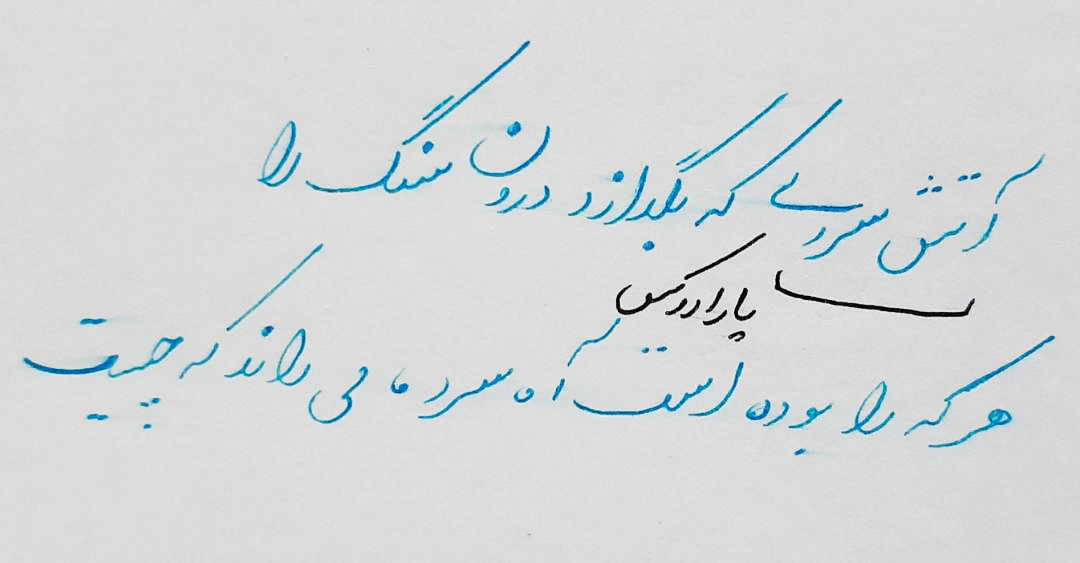 آتش سردی که بگدازد درون سنگ را
پارادوکس
هر که را بوده است آه سرد ما می داند که چیست